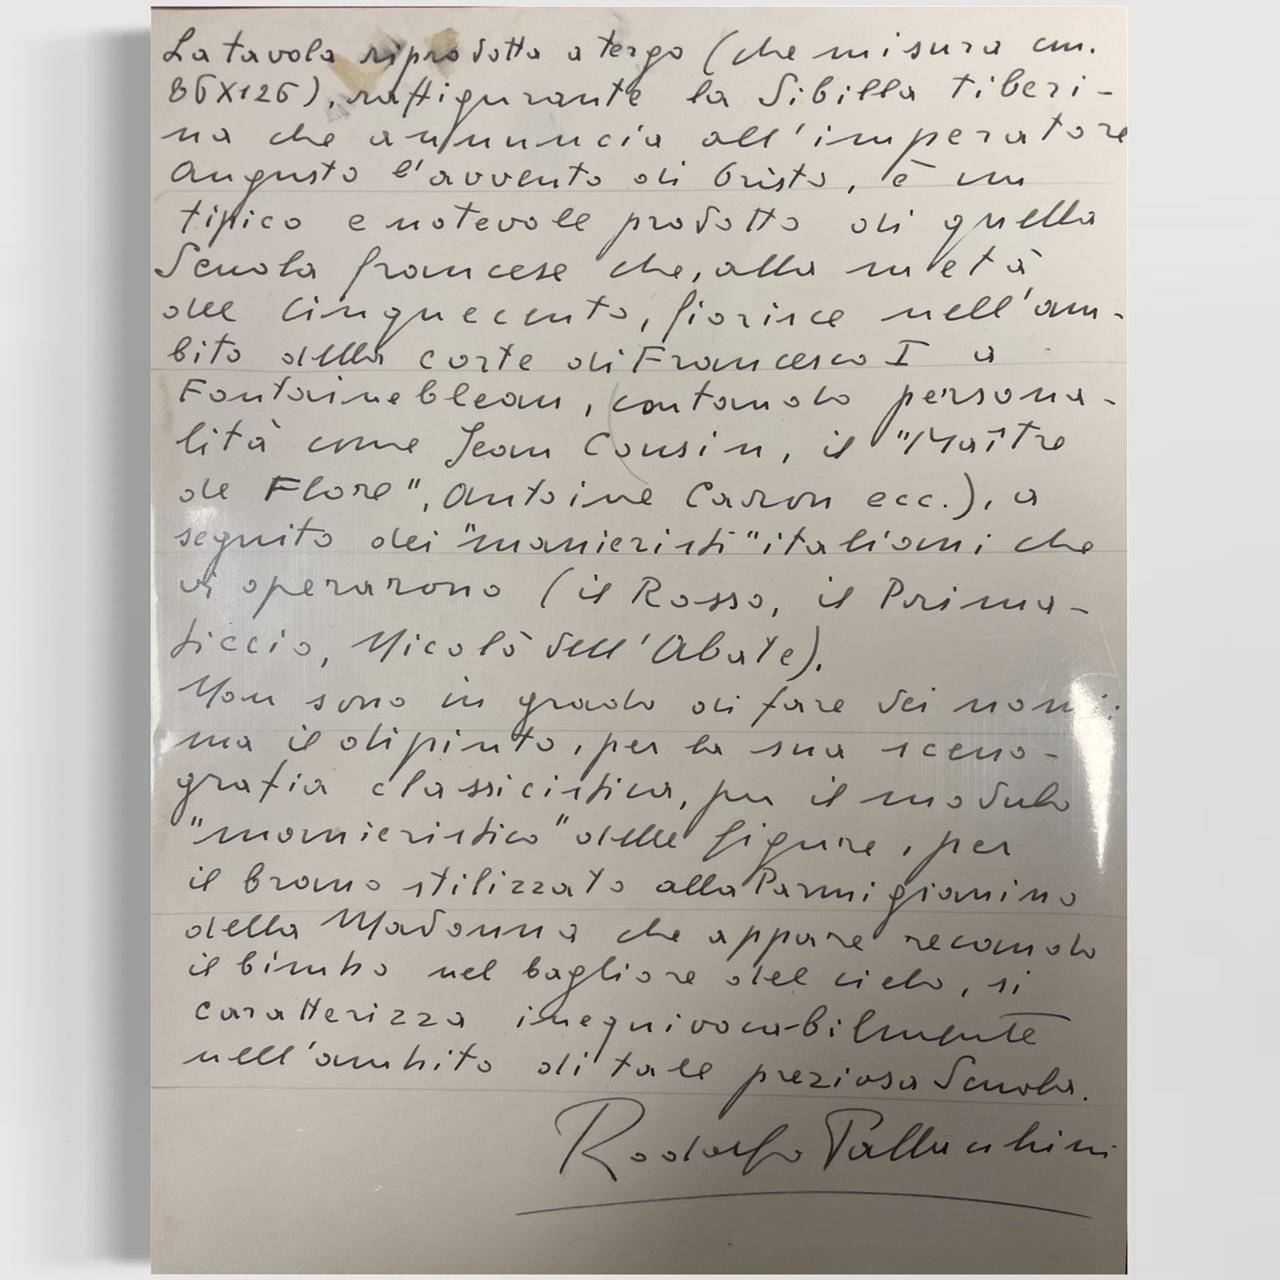 La tavola riprodotta a tergo (che misura cm.
86X126), raffigurante la Sibilla Tiberi-
na che annuncia all'imperatore
Augusto l'avvento di Cristo, è un
tipico e notevole prodotto di quella
Scuola francese che, alla metà
del Cinquecento, fiorisce nell'am-
bito della corte di Francesco I a
Fontainebleau, (contando persona-
lità come Jean Cousin, il "Maître
de Flore", Antoine Caron ecc.), a
seguito dei "manieristi" italiani che
vi operarono (il Rosso, il Prima-
ticcio, Nicolò dell'Abate).
Non sono in grado di fare dei nomi:
ma il dipinto, per la sua sceno-
grafia classicistica, per il modulo
"manieristico" delle figure, per
il brano stilizzato alla Parmigianino
della Madonna che appare recando
il bimbo nel bagliore del cielo, si
caratterizza inequivocabilmente
nell'ambito di tale preziosa Scuola.
Rodolfo Pallucchini